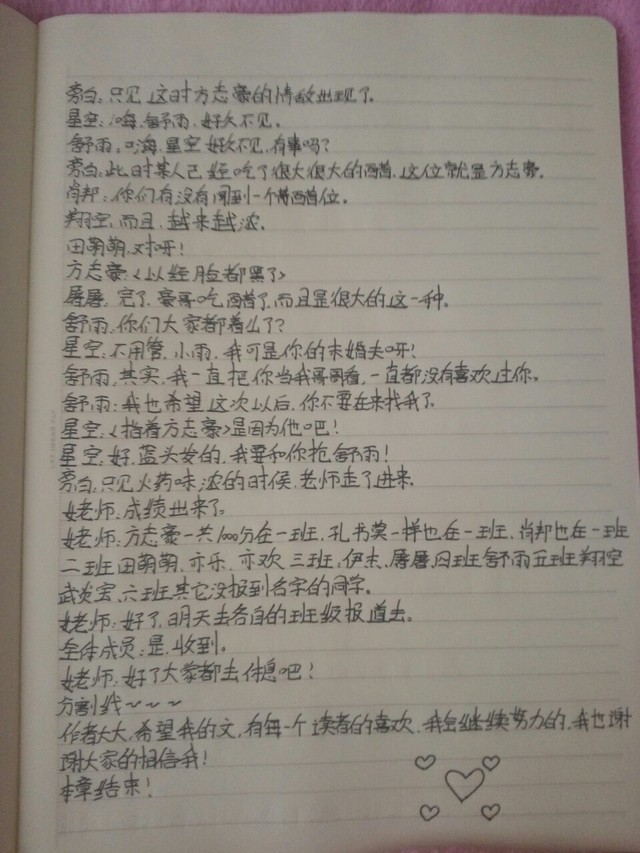 旁白：只见这时方志豪的情敌出现了。
星空：嗨，舒雨，好久不见。
舒雨：嗨，星空好久不见，有事吗？
旁白：此时某人已经吃了很大很大的醋，这位就是方志豪。
肖邦：你们有没有闻到一个醋位。
翔空：而且，越来越浓。
田萌萌：对呀！
方志豪：＜以经脸都黑了＞
屠屠：完了，豪哥吃醋了，而且是很大的这一种。
舒雨：你们大家都着么了？
星空：不用管，小雨，我可是你的未婚夫呀！
舒雨：其实，我一直把你当我哥哥看，一直都没有喜欢过你。
舒雨：我也希望这次以后，你不要在来找我了。
星空：＜指着方志豪＞是因为他吧！
星空：好，蓝头发的，我要和你抢舒雨！
旁白：只见火药味浓的时候，老师走了进来。
姥老师：成绩出来了。
姥老师：方志豪一共1000分在一班，孔书漠一样也在一班，肖邦也在一班
二班田萌萌、亦乐、亦欢三班：伊杰、屠屠，四班舒雨五班翔空
武炎宝、六班其它没报到名字的同学。
姥老师：好了，明天去各自的班级报道去。
全体成员：是，收到。
姥老师：好了大家都去休息吧！
分割线～～～
作者大大，希望我的文，有每一个读者的喜欢，我会继续努力的，我也谢
谢大家的相信我！
本章结束！